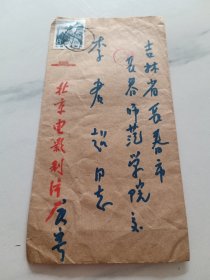 吉林省长春市
长春师范学院交
李君超同志
北京电影制片厂